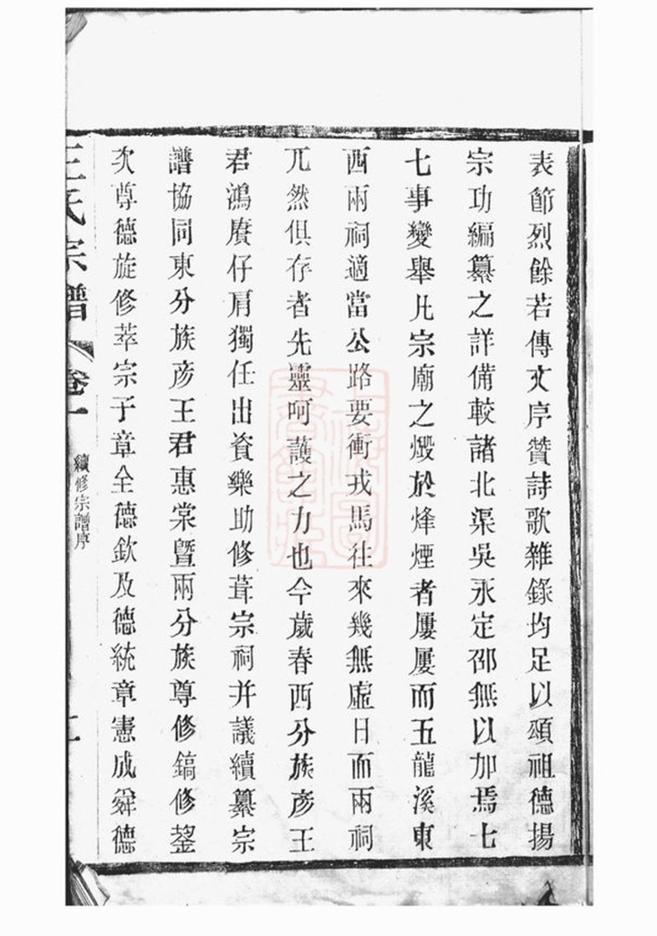 表節烈餘若傳文序贊詩歌雜錄均足以頌祖德揚
宗功編纂之詳備較諸北渠吳永定邵無以加焉七
七事變舉凡宗廟之燬於烽煙者屢屢而五龍溪東
西兩祠適當公路要衝戎馬往來幾無虛日而兩祠
兀然俱存者先靈呵護之力也今歲春西分族彦王
君鴻賡仔肩獨任出資樂助修葺宗祠并議續纂宗
譜協同東分族彦王君惠棠暨兩分族尊修鎬修鋆
次尊德旋修萃宗子章全德欽及德統章憲成舜德
王氏宗譜 卷一 續修宗譜序